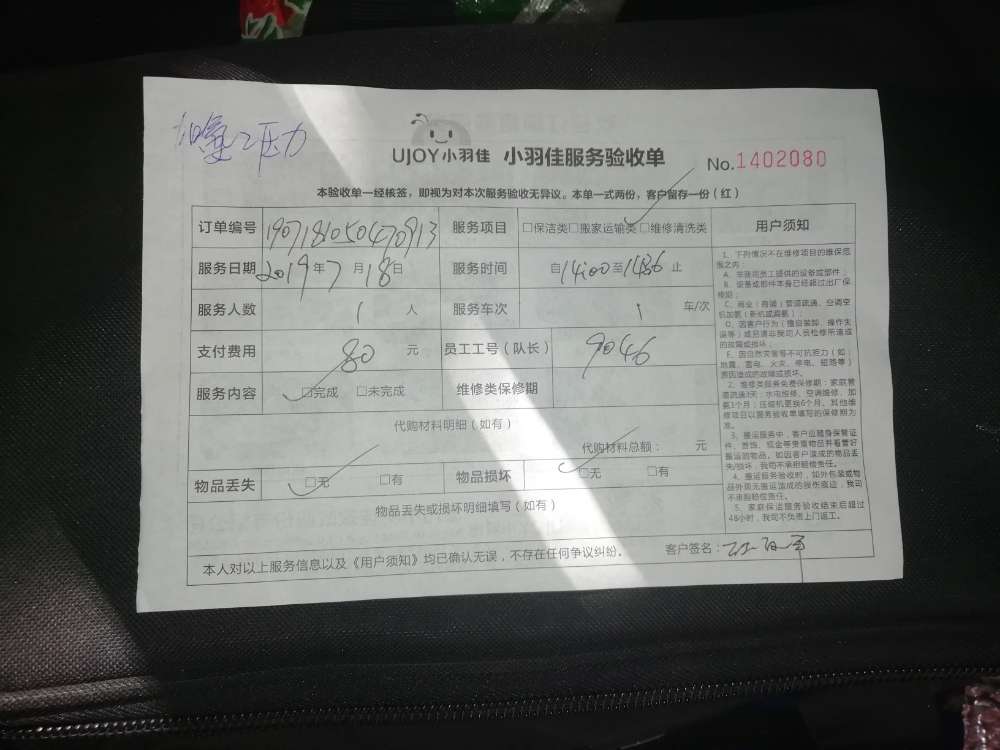 加氧2压力
UJOY小羽佳 小羽佳服务验收单 No.1402080
本验收单一经核签，即视为对本次服务验收无异议。本单一式两份，客户留存一份（红）
订单编号 1907181050470913 服务项目 □保洁类□搬家运输类□维修清洗类
服务日期 2019年7月18日 服务时间 自14:00至1436止
服务人数 1 人 服务车次 1 车/次
支付费用 80 元 员工工号（队长） 9046
服务内容 □完成 □未完成 维修类保修期
代购材料明细（如有）
代购材料总额： 元
物品丢失 □无 □有 物品损坏 □无 □有
物品丢失或损坏明细填写（如有）
本人对以上服务信息以及《用户须知》均已确认无误，不存在任何争议纠纷。 客户签名：
用户须知
1、下列情况不在维修项目的维保范
围之内：
A、非我司员工提供的设备或部件；
B、设备或部件本身已经超过出厂保
修期；
C、商业（商铺）管道疏通、空调空
机加氨（新机或漏氨）；
D、因客户行为（擅自装卸、操作失
误等）或总请非我司人员检修所造成
的故障或损坏；
E、因自然灾害等不可抗拒力（如：
地震、雷电、火灾、停电、短路等）
原因造成的故障或损坏。
2、维修类服务免费保修期：家庭管
道疏通3天；水电维修、空调维修、加
氨1个月；压缩机更换6个月。其他维
修项目以服务验收单填写的保修期为
准。
3、搬运服务中，客户应随身保管证
件、首饰、现金等贵重物品并看管好
搬运的物品，如因客户造成的物品丢
失/损坏，我司不承担赔偿责任。
4、搬运服务验收时，如外包装或物
品外观无搬运造成的损伤痕迹，我司
不承担赔偿责任。
5、家庭保洁服务验收结束后超过
48小时，我司不负责上门返工。